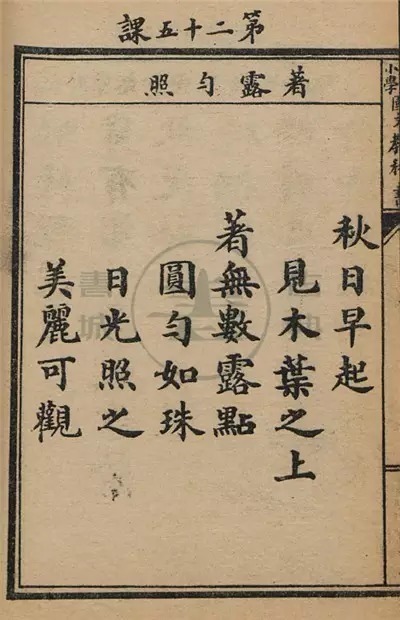 第二十五課
著露勻照
秋日早起
見木葉之上
著無數露點
圓勻如珠
日光照之
美麗可觀
小學國文教科書
書城